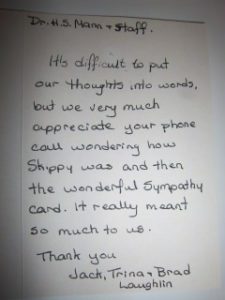 Dr. H.S. Mann & Staff.
It's difficult to put
our thoughts into words,
but we very much
appreciate your phone
call wondering how
Skippy was and then
the wonderful Sympathy
card. It really meant
so much to us.
Thank you
Jack, Trina & Brad
Laughlin